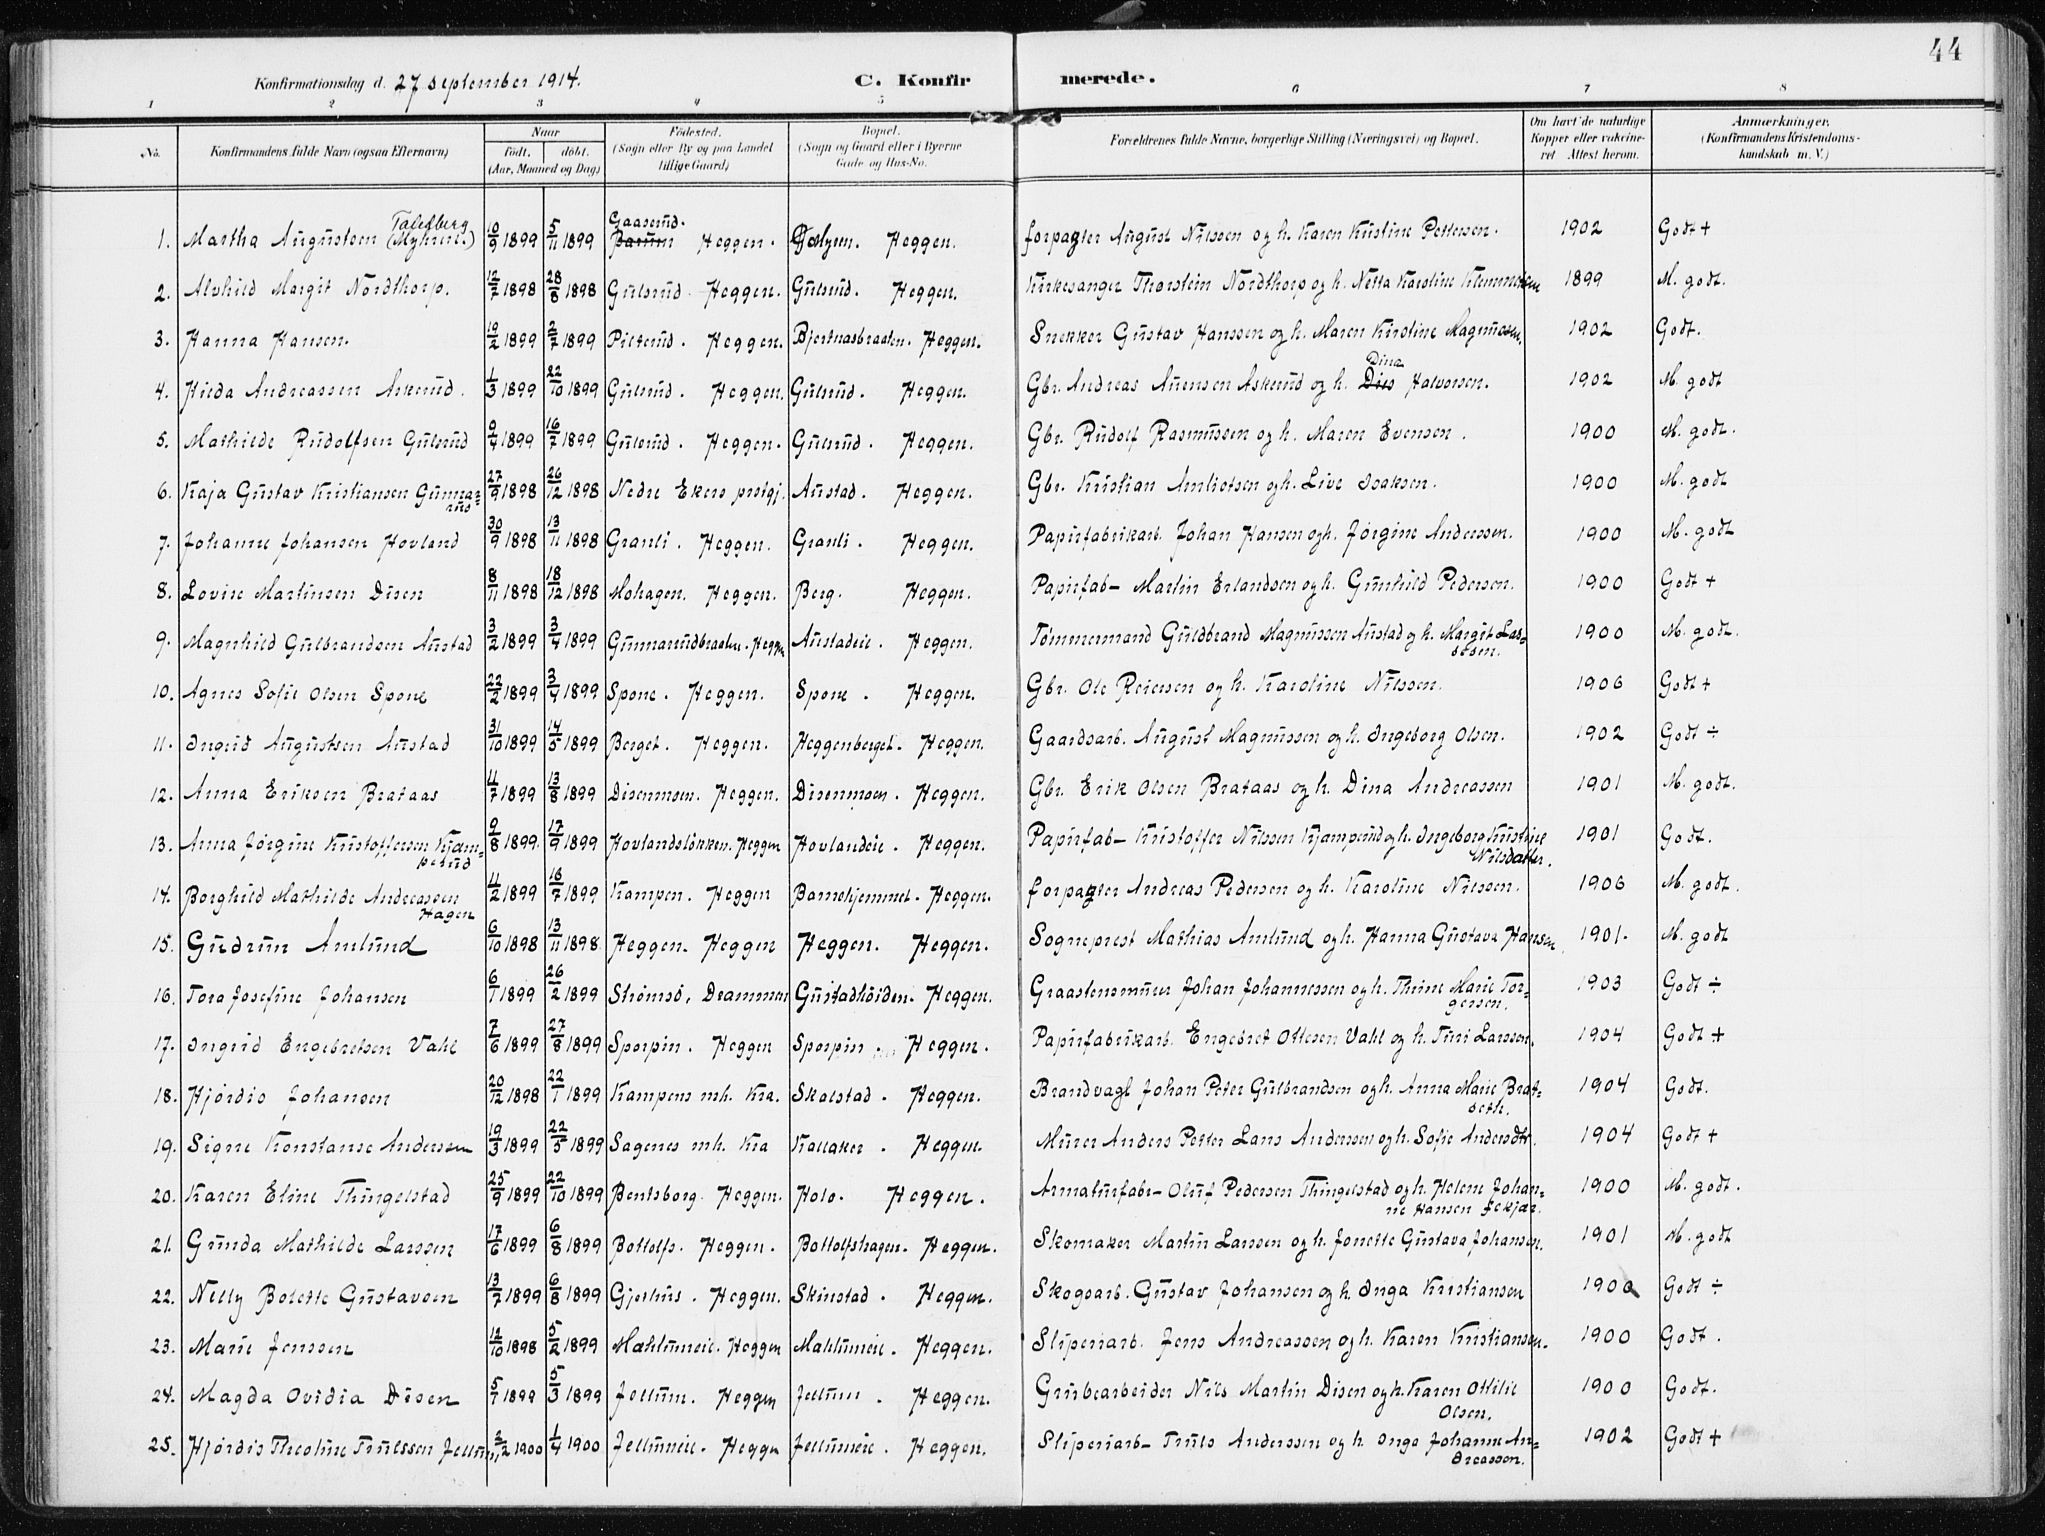 44
Konfirmationsdag d. 27 september 1914. C. Konfirmerede.
1 2 3 4 5 6 7 8
No. Konfirmandens fulde Navn (ogsaa Efternavn) Naar født. døbt. (Aar, Maaned og Dag) Fødested. (Sogn eller By og paa Landet tillige Gaard) Bopæl. (Sogn og Gaard eller i Byerne Gade og Hus-No. Forældrenes fulde Navne, borgerlige Stilling (Næringsvei) og Bopæl. Om havt de naturlige Kopper eller vakcineret Attest herom. Anmærkninger. (Konfirmandens Kristendomskundskab m. V.)
1. Martha Augustsen (Myhren) 10/9 1899 5/11 1899 Gaaserud. Heggen. Heggen. forpagter August Nilssen og h. Karen Kristine Pettersen. 1902 Godt +
2. Alvhild Margit Nordthorp. 12/7 1898 28/8 1898 Gulsrud. Heggen. Gulsrud. Heggen. Kirkesanger Thorstein Nordthorp og h. Netta Karoline Klemmetsen 1899 M. godt.
3. Hanna Hansen. 19/2 1899 2/7 1899 Pilterud. Heggen. Bjertnæsbraaten. Heggen. Snekker Gustav Hanssen og h. Maren Kirstine Magnussen. 1902 Godt.
4. Hilda Andreassen Askerud. 1/3 1899 22/10 1899 Gulsrud. Heggen. Gulsrud. Heggen. Gbr. Andreas Aurensen Askerud og h. Dina Halvorsen. 1902 M. godt
5. Mathilde Rudolfsen Gulsrud 9/4 1899 16/7 1899 Gulsrud. Heggen. Gulsrud. Heggen. Gbr. Rudolf Rasmussen og h. Maren Evensen. 1900 M. godt.
6. Kaja Gustav Kristiansen Gunnarud 27/9 1898 26/12 1898 Nedre Ekers prstgj. Austad. Heggen. Gbr. Kristian Amlietsen og h. Live Isaksen. 1900 M. godt
7. Johanne Johansen Hovland 30/9 1898 13/11 1898 Granli. Heggen. Granli. Heggen. Papirfabrikarb. Johan Hansen og h. Jørgine Anderssen. 1900 M. godt
8. Lovise Martinsen Disen 8/11 1898 18/12 1898 Mohagen. Heggen. Berg. Heggen. Papirfab- Martin Erlandsen og h. Gunhild Pedersen. 1900 Godt +
9. Magnhild Gulbrandsen Austad 3/2 1899 3/4 1899 Gunnarudbraaten. Heggen Austadeie. Heggen. Tømmermand Guldbrand Magnussen Austad og h. Margit Lassesen. 1900 M. godt.
10. Agnes Sofie Olsen Spone 22/2 1899 3/4 1899 Spone. Heggen. Spone. Heggen. Gbr. Ole Reiersen og h. Karoline Nilssen. 1906 Godt +
11. Ingrid Augustsen Austad 31/10 1899 14/5 1899 Berget. Heggen. Heggenberget. Heggen. Gaardsarb. August Magnussen og h. Ingeborg Olsen. 1902 Godt ÷
12. Anna Eriksen Brataas 11/7 1899 13/8 1899 Disenmoen. Heggen. Disenmoen. Heggen. Gbr. Erik Olsen Brataas og h. Dina Andreassen 1901 M. godt.
13. Anna Jørgine Kristoffersen Kjæmperud 9/8 1899. 17/9 1899 Hovlandsløkken. Heggen Hovlandeie. Heggen. Papirfab- Kristoffer Nilssen Kjamperud og h. Ingeborg Kristine Nilsdatter. 1901 Godt.
14. Borghild Mathilde Andreassen Hagen 11/2 1899 16/7 1899 Kampen. Heggen Barnehjemmet. Heggen. forpagter Andreas Pedersen og h. Karoline Nilssen. 1906 M. godt.
15. Gudrun Amlund 6/10 1898 13/11 1898. Heggen. Heggen Heggen. Heggen. Sogneprest Mathias Amlund og h. Hanna Gustava Hansen 1901. M. godt
16. Tora Josefine Johansen 6/1 1899 26/2 1899 Strømsø, Drammen Gustadhøiden. Heggen. Graastensmurer Johan Johannessen og h. Thrine Marie Torgersen. 1903 Godt ÷
17. Ingrid Engebretsen Vahl 7/6 1899 27/8 1899 Sporpin. Heggen Sporpin. Heggen. Papirfabrikarb. Engebret Ottesen Vahl og h. Turi Larssen. 1904 Godt +
18. Hjørdis Johansen 20/12 1898 22/1 1899 Kampens mh. Kra. Skalstad. Heggen. Brandvagt Johan Peter Gulbrandsen og h. Anna Marie Bratseth. 1904 Godt.
19. Signe Konstanse Anderssen 19/3 1899 22/5 1899 Sagenes mh. Kra Kallaker. Heggen. Murer Anders Petter Lans Anderssen og h. Sofie Andersdtr. 1904 Godt +
20. Karen Eline Thingelstad 25/9 1899 22/10 1899 Bentsborg. Heggen. Holo. Heggen. Armaturfabr- Oluf Pedersen Thingelstad og h. Helene Johanne Hansen Fekjær. 1900 M. godt.
21. Gunda Mathilde Larssen 17/6 1899 6/8 1899 Bottolfs. Heggen. Bottolfshagen. Heggen. Skomaker Martin Larssen og h. Jonette Gustava Johansen. 1901 M. godt
22. Nelly Bolette Gustavsen 13/7 1899 6/8 1899 Gjethus. Heggen. Skinstad. Heggen. Skogsarb. Gustav Johansen og h. Inga Kristiansen 1900 Godt ÷
23. Marie Jenssen 12/10 1898 5/2 1899 Mæhlumeie. Heggen Mæhlumeie. Heggen. Sliperiarb. Jens Andreassen og h. Karen Kristiansen. 1900 Godt.
24. Magda Ovidia Disen 5/1 1899 5/3 1899 Jellum. Heggen Jellum. Heggen. Grubearbeider Nils Martin Disen og h. Karen Ottilie Olsen. 1900 Godt.
25. Hjørdis Theoline Trulssen Jellum 2/2 1900 1/4 1900 Jellumeie. Heggen Jellumeie. Heggen. Sliperiarb- Truls Anderssen og h. Inga Johanne Andreassen. 1902 Godt +